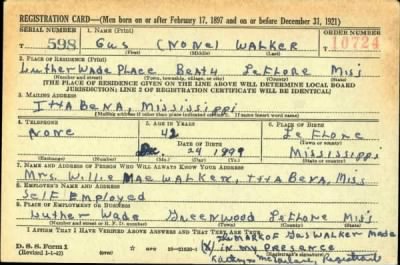 REGISTRATION CARD—(Men born on or after February 17, 1897 and on or before December 31, 1921)
SERIAL NUMBER 1. NAME (Print) ORDER NUMBER
T 598 Gus (NONE) WALKER 10724
(First) (Middle) (Last)
2. PLACE OF RESIDENCE (Print)
Luther Wade Place Beaty LeFlore Miss
(Number and street) (Town, township, village, or city) (County) (State)
[THE PLACE OF RESIDENCE GIVEN ON THE LINE ABOVE WILL DETERMINE LOCAL BOARD
JURISDICTION; LINE 2 OF REGISTRATION CERTIFICATE WILL BE IDENTICAL]
3. MAILING ADDRESS
ITTA BENA, MISSISSIPPI
[Mailing address if other than place indicated on line 2. If same insert word same]
4. TELEPHONE 5. AGE IN YEARS 6. PLACE OF BIRTH
None 42 LeFlore
DATE OF BIRTH (Town or county)
Dec. 24 1899 Mississippi
(Exchange) (Number) (Mo.) (Day) (Yr.) (State or country)
7. NAME AND ADDRESS OF PERSON WHO WILL ALWAYS KNOW YOUR ADDRESS
Mrs. Willie Mae Walker, Itta Bena, Miss
8. EMPLOYER'S NAME AND ADDRESS
Self Employed
9. PLACE OF EMPLOYMENT OR BUSINESS
Luther Wade Greenwood Leflore Miss
(Number and street or R. F. D. number) (Town) (County) (State)
I AFFIRM THAT I HAVE VERIFIED ABOVE ANSWERS AND THAT THEY ARE TRUE.
The MARK OF Gus WALKER Made
(X) in my presence
D. S. S. Form 1
(Revised 1-1-42) (over) 16—21630-1 (Registrant's signature)
Registrar